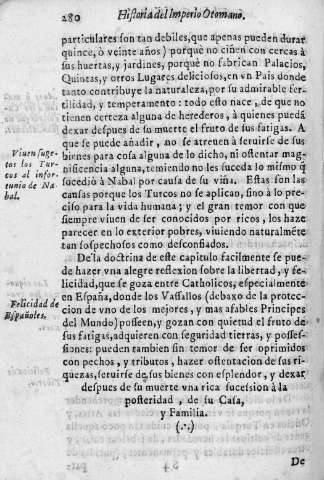 280 Historia del Imperio Otomano.
particulares son tan debiles, que apenas pueden durar
quince, ò veinte años) porquè no ciñen con cercas à
sus huertas, y jardines, porquè no fabrican Palacios,
Quintas, y otros Lugares deliciosos, en vn Pais donde
tanto contribuye la naturaleza, por su admirable fer-
tilidad, y temperamento: todo esto nace, de que no
tienen certeza alguna de herederos, à quienes puedā
dexar despues de su muerte el fruto de sus fatigas. A
que se puede añadir, no se atreuen à seruirse de sus
Viuen suge- bienes para cosa alguna de lo dicho, ni ostentar mag-
tos los Tur- nificencia alguna, temiendo no les suceda lo mismo q̄
cos al infor- sucediò à Nabal por causa de su viña. Estas son las
tunio de Na causas porque los Turcos no se aplican, sino à lo pre-
bal. ciso para la vida humana; y el gran temor con que
siempre viuen de ser conocidos por ricos, los haze
parecer en lo exterior pobres, viuiendo naturalmēte
tan sospechosos como desconfiados.
De la doctrina de este capitulo facilmente se pue-
de hazer vna alegre reflexion sobre la libertad, y fe-
licidad, que se goza entre Catholicos, especialmente
Felicidad de en España, donde los Vassallos (debaxo de la protec-
Españoles. cion de vno de los mejores, y mas afables Principes
del Mundo) posseen, y gozan con quietud el fruto de
sus fatigas, adquieren con seguridad tierras, y posses-
siones: pueden tambien sin temor de ser oprimidos
con pechos, y tributos, hazer ostentacion de sus ri-
quezas, seruirse de sus bienes con esplendor, y dexar
despues de su muerte vna rica sucession à la
posteridad, de su Casa,
y Familia.
(∴)
De